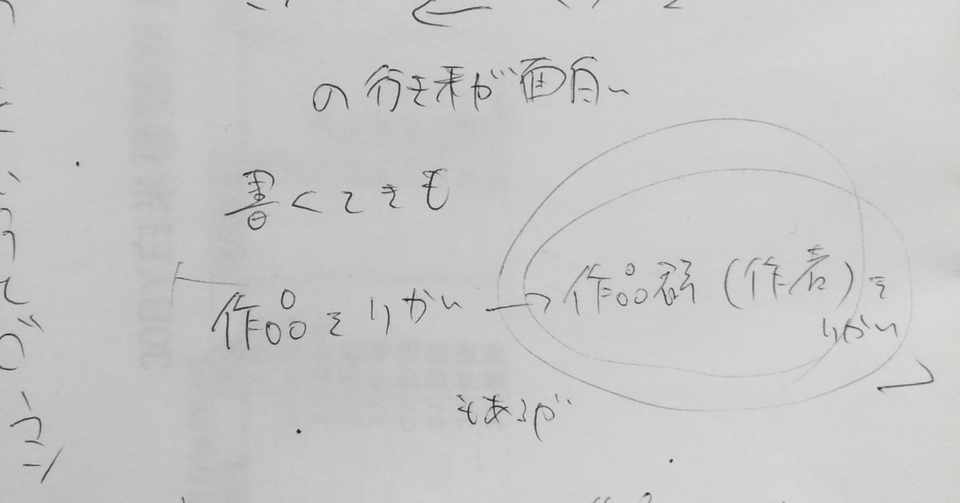 の行き来が面白い
書くときも
「作品をりかい→作品群(作者)を
りかい」
もあるが